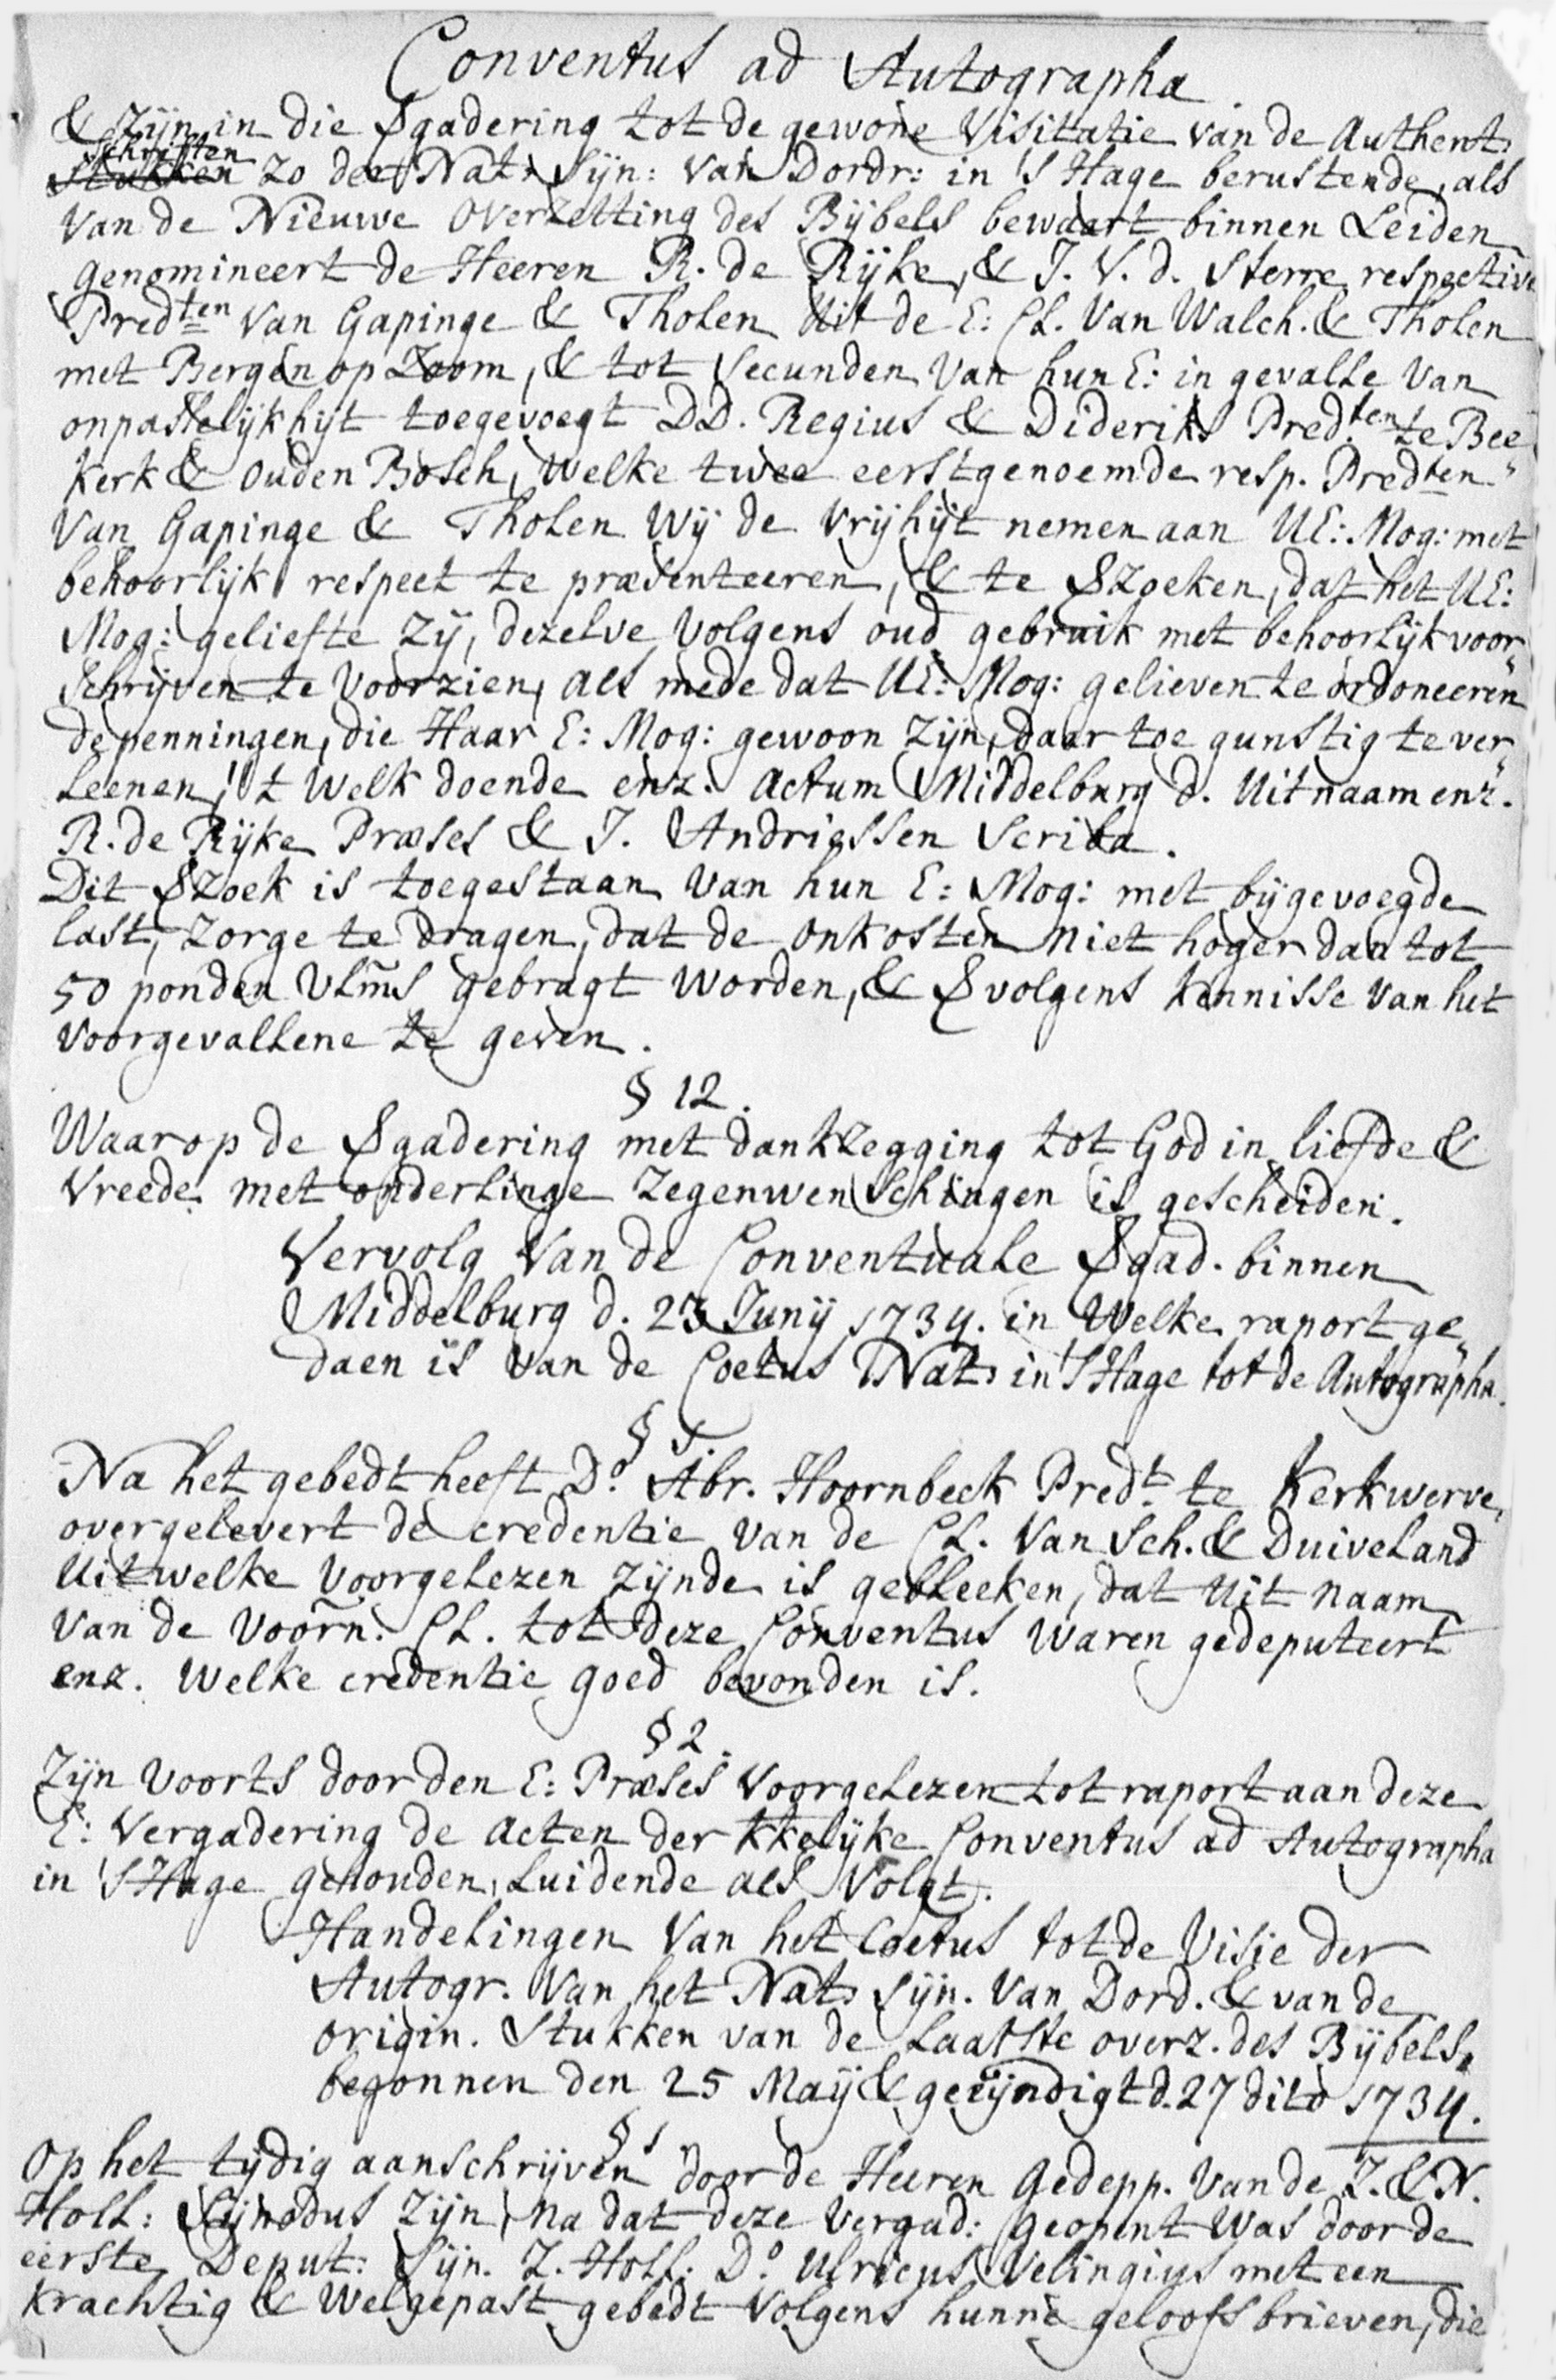 Conventus ad Autographa.
& zijn in die Vgadering tot de gewone Visitatie van de Authent:
schriften
stukken zo der Nat: Sijn: van Dordr: in 'S Hage berustende, als
van de Nieuwe overzetting des Bijbels bewaart binnen Leiden
genomineert de Heeren R. de Rijke, & J. V. d. Sterre respective
Predten van Gapinge & Tholen Uit de E: Cl. van Walch. & Tholen
met Bergen op Zoom, & tot secunden van hun E: in gevalle van
onpasselijkhijt toegevoegt DD. Regius & Dideriks Predten te Bee
kerk & ouden Bosch, welke twee eerstgenoemde resp. Predten
van Gapinge & Tholen wij de vrijhijt nemen aan UE: Mog: met
behoorlijk respect te præsenteeren, & te Vzoeken, dat het UE:
Mog: geliefte zij, dezelve volgens oud gebruik met behoorlijk voor„
schrijven te voorzien, als mede dat UE: Mog: gelieven te ordoneeren
de penningen, die Haar E: Mog: gewoon zijn, daar toe gunstig te ver„
leenen, 't welk doende enz. Actum Middelburg d. Uit naam enz.
R. de Rijke Præses & J. Andriessen Scriba.
Dit Vzoek is toegestaan van hun E: Mog: met bijgevoegde
last, zorge te dragen, dat de onkosten niet hoger dan tot
50 ponden Vlms gebragt worden, & Vvolgens kennisse van het
voorgevallene te geven.
§ 12.
Waarop de Vgadering met dankzegging tot God in liefde &
vreede met onderlinge zegenwenschingen is gescheiden.
Vervolg van de Conventuale Vgad. binnen
Middelburg d. 23 Junij 1734. in welke raport ge„
daen is van de Coetus Nat: in 'S Hage tot de Autographa.
§ 1.
Na het gebedt heeft Do. Abr. Hoornbeek Predt. te Kerkwerve,
overgelevert de credentie van de Cl. van Sch. & Duiveland
Uit welke voorgelezen zijnde is gebleeken, dat uit naam
van de voorn. Cl. tot deze Conventus waren gedeputeert
enz. welke credentie goed bevonden is.
§ 2.
Zijn voorts door den E: Præses voorgelezen tot raport aan deze
E: Vergadering de Acten der kkelijke Conventus ad Autographa
in 'S Hage gehouden, luidende als volgt.
Handelingen van het Coetus tot de Visie der
Autogr. van het Nat: Sijn. van Dord. & van de
origin. stukken van de laatste overz. des Bijbels,
begonnen den 25 Maij & geëijndigt d. 27 dito 1734.
§ 1
Op het tijdig aanschrijven door de Heeren Gedepp. van de Z. & N.
Holl: Sijnodus zijn, na dat deze vergad: geopent was door de
eerste Deput: Sijn. Z. Holl: Do. Ulricus Velingius met een
krachtig & welgepast gebedt volgens hunne geloofsbrieven, die